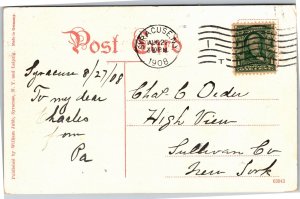 Post Card
SYRACUSE, N.Y.
1908
Syracuse 8/27/08
To my dear
Charles
from
Pa
Chas C Order
High View
Sullivan Co
New York
Published by William Jubb, Syracuse, N. Y. and Leipzig. Made in Germany.